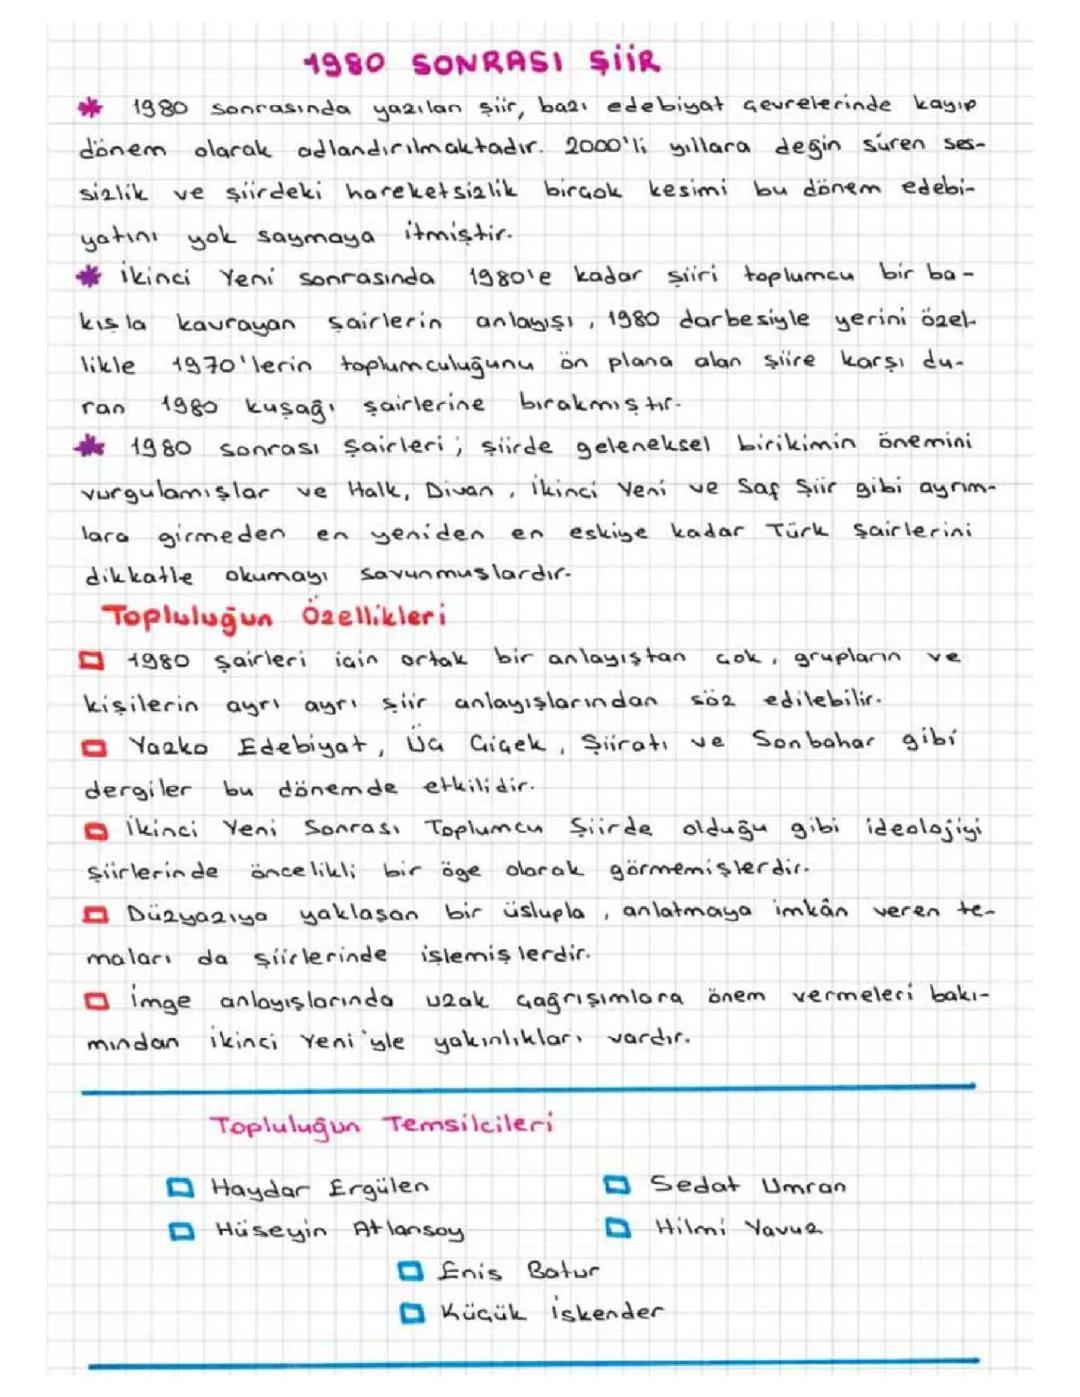 1980 SONRASI ŞİİR
* 1980 sonrasında yazılan şiir, bazı edebiyat çevrelerinde kayıp
dönem olarak adlandırılmaktadır. 2000'li yıllara değin süren ses-
sizlik ve şiirdeki hareketsizlik birçok kesimi bu dönem edebi-
yatını yok saymaya itmiştir.
* İkinci Yeni sonrasında 1980'e kadar şiiri toplumcu bir ba-
kışla kavrayan şairlerin anlayışı, 1980 darbesiyle yerini özel-
likle 1970'lerin toplumculuğunu ön plana alan şiire karşı du-
ran 1980 kuşağı şairlerine bırakmıştır.
* 1980 sonrası şairleri; şiirde geleneksel birikimin önemini
vurgulamışlar ve Halk, Divan, İkinci Yeni ve Saf Şiir gibi ayrım-
lara girmeden en yeniden en eskiye kadar Türk şairlerini
dikkatle okumayı savunmuşlardır.
Topluluğun Özellikleri
1980 şairleri için ortak bir anlayıştan çok, grupların ve
kişilerin ayrı ayrı şiir anlayışlarından söz edilebilir.
Yazko Edebiyat, Üç Çiçek, Şiiratı ve Sonbahar gibi
dergiler bu dönemde etkilidir.
İkinci Yeni Sonrası Toplumcu Şiirde olduğu gibi ideolojiyi
şiirlerinde öncelikli bir öge olarak görmemişlerdir.
Düzyazıya yaklaşan bir üslupla, anlatmaya imkân veren te-
maları da şiirlerinde işlemişlerdir.
İmge anlayışlarında uzak çağrışımlara önem vermeleri bakı-
mından İkinci Yeni'yle yakınlıkları vardır.
Topluluğun Temsilcileri
Haydar Ergülen Sedat Umran
Hüseyin Atlansoy Hilmi Yavuz
Enis Batur
Küçük İskender